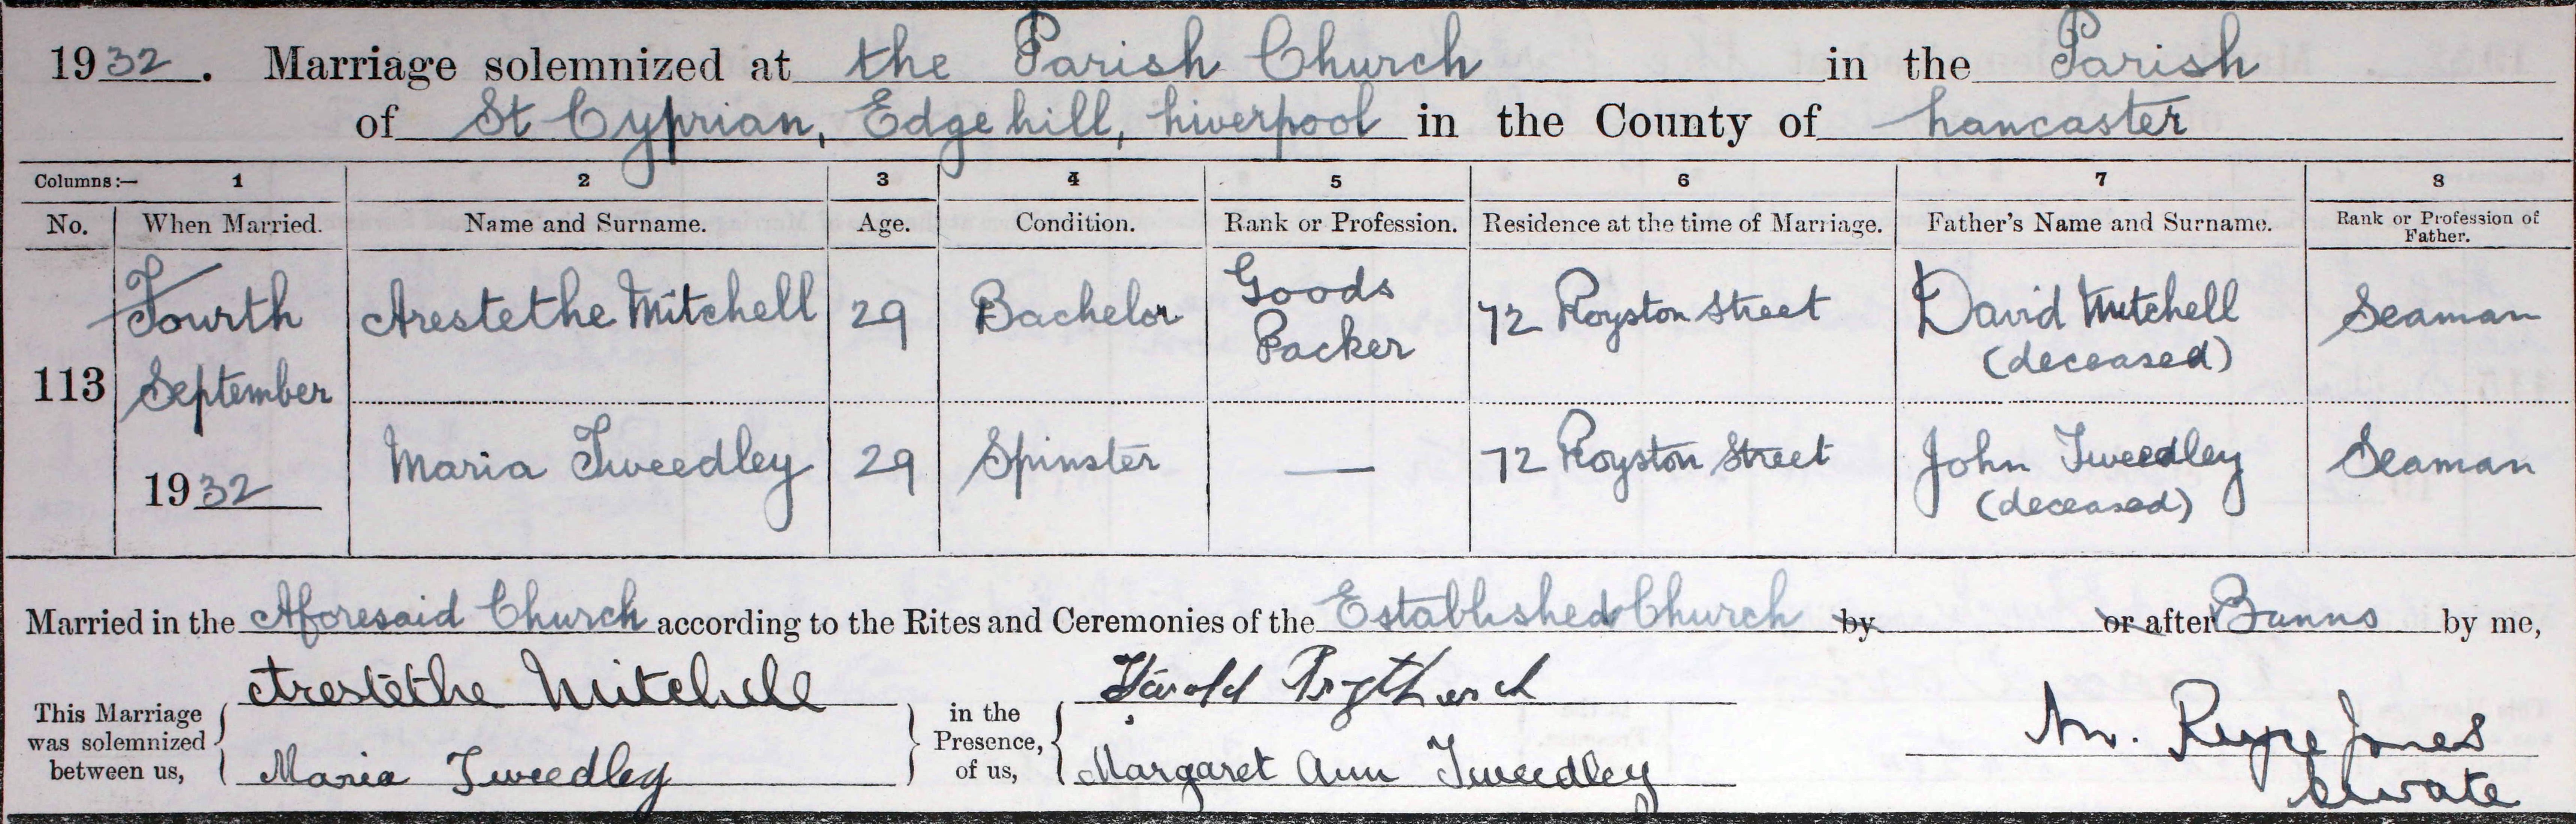 1932. Marriage solemnized at the Parish Church in the Parish
of St Cyprian, Edge hill, Liverpool in the County of Lancaster
Columns:— 1 2 3 4 5 6 7 8
No. When Married. Name and Surname. Age. Condition. Rank or Profession. Residence at the time of Marriage. Father's Name and Surname. Rank or Profession of Father.
113 Fourth September 1932
Arestethe Mitchell 29 Bachelor Goods Packer 72 Royston Street David Mitchell (deceased) Seaman
Maria Tweedley 29 Spinster — 72 Royston Street John Tweedley (deceased) Seaman
Married in the Aforesaid Church according to the Rites and Ceremonies of the Established Church by or after Banns by me,
This Marriage was solemnized between us,
Arestethe Mitchell
Maria Tweedley
in the Presence, of us,
Harold Prytherch
Margaret Ann Tweedley
Jones
Curate